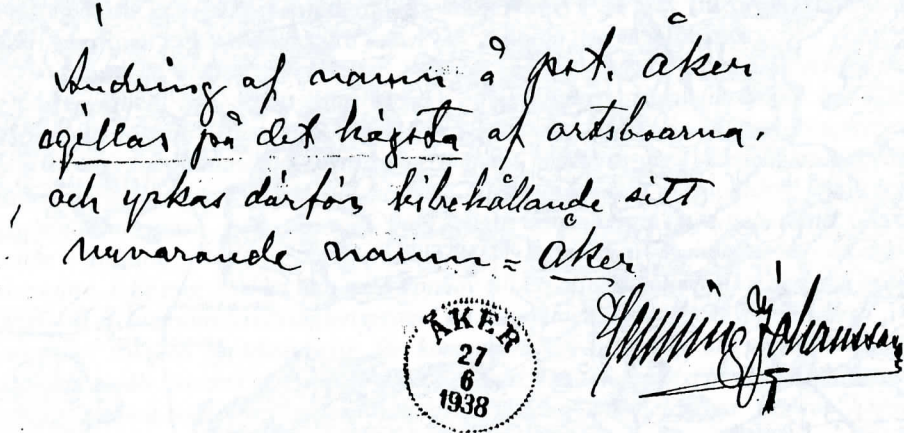 Ändring af namn å pst. Åker
ogillas på det högsta af ortsboarna.
och yrkas därför bibehållande sitt
nuvarande namn = Åker
Henning Johansson
ÅKER
27
6
1938